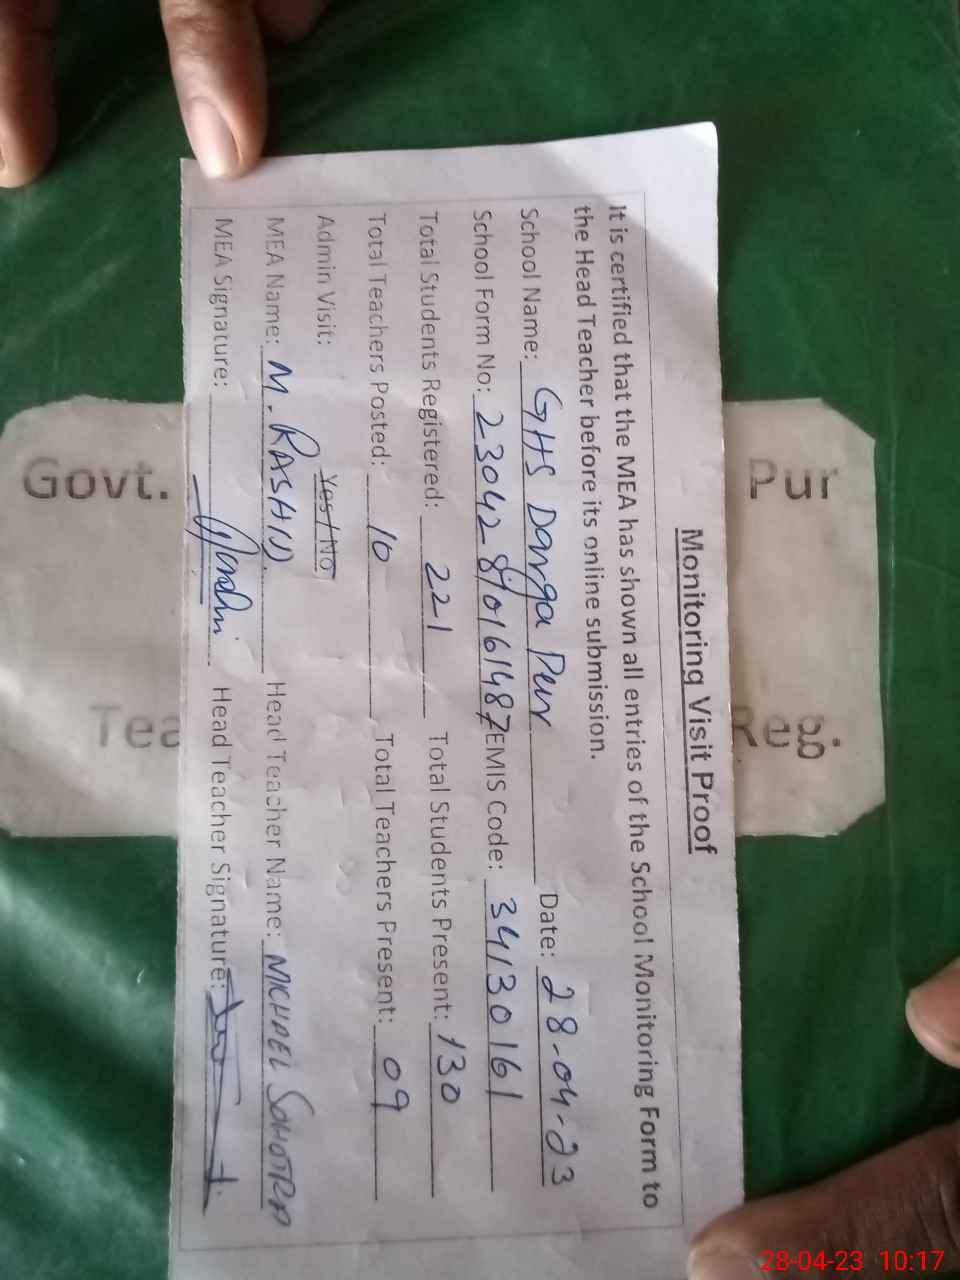 Monitoring Visit Proof
It is certified that the MEA has shown all entries of the School Monitoring Form to
the Head Teacher before its online submission.
School Name: GHS Darga Pur Date: 28-04-23
School Form No: 23042810161487 EMIS Code: 34130161
Total Students Registered: 221 Total Students Present: 130
Total Teachers Posted: 10 Total Teachers Present: 09
Admin Visit: Yes / No
MEA Name: M. RASHID Head Teacher Name: MICHAEL SOHOTRA
MEA Signature: Head Teacher Signature:
Govt. Pur
Tea Reg.
28-04-23 10:17